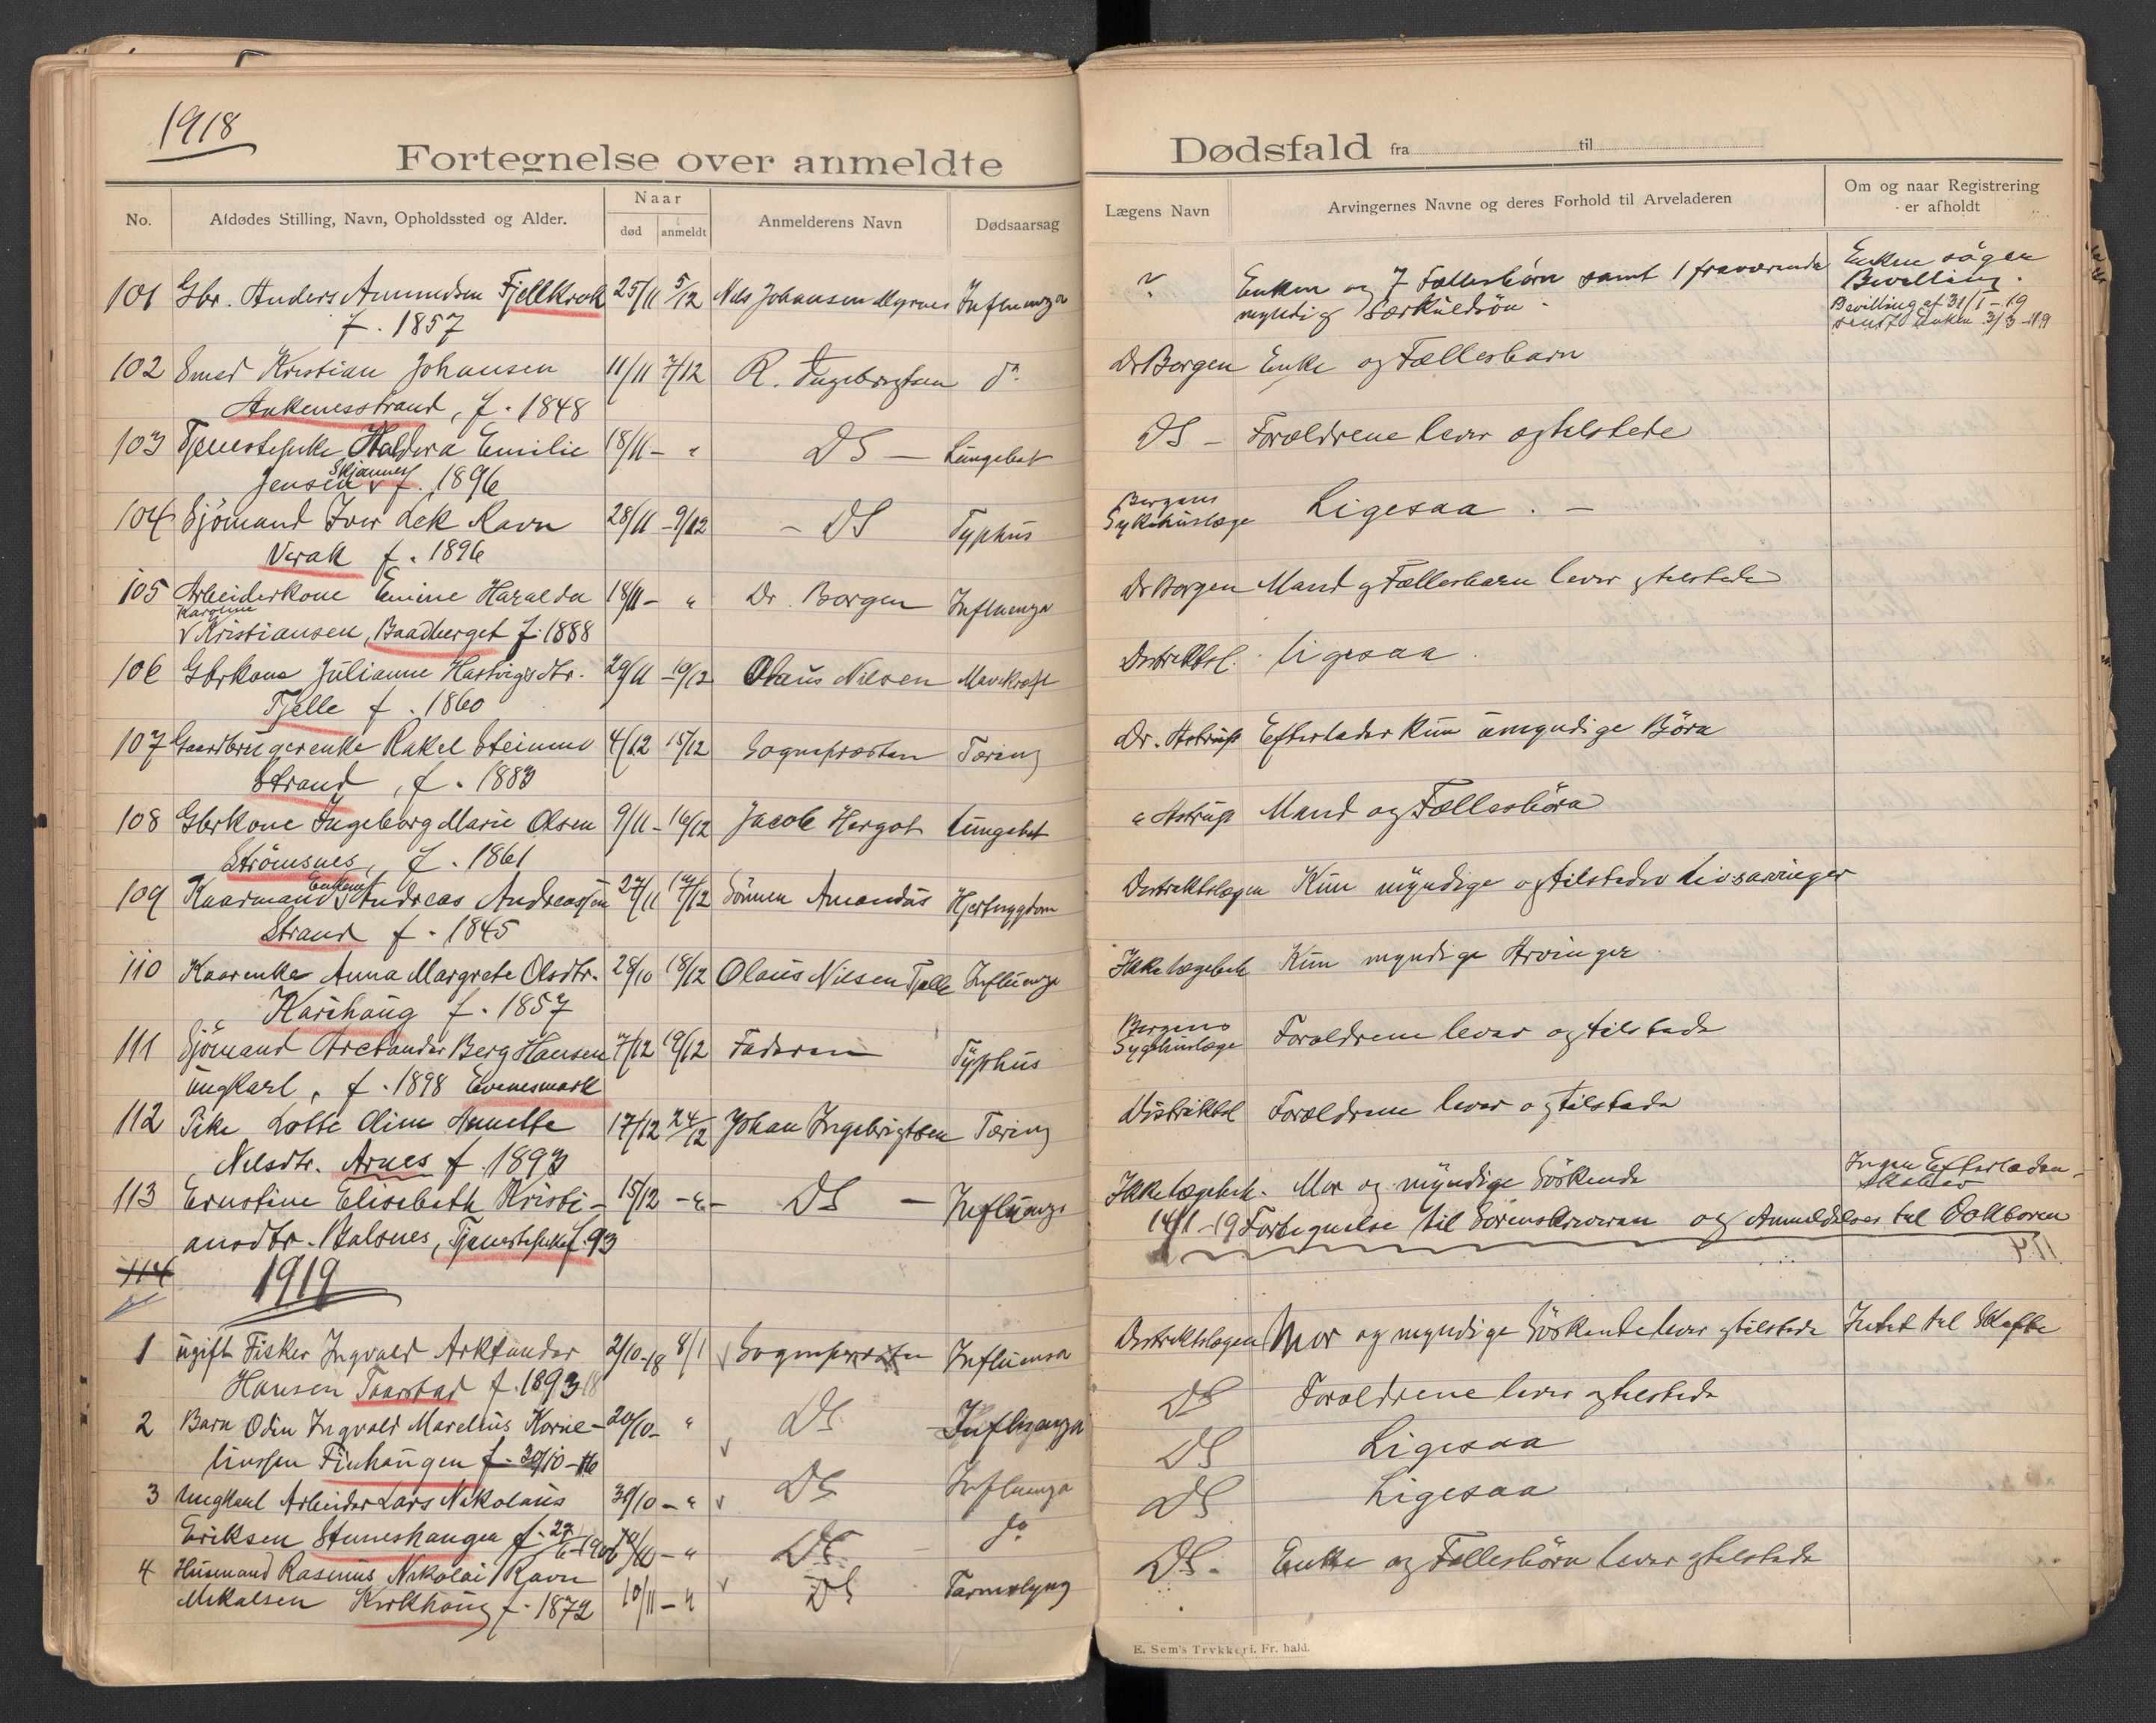 1918
Fortegnelse over anmeldte
No.
Afdødes Stilling, Navn, Opholdssted og Alder.
Naar
død
anmeldt
Anmelderens Navn
Dødsaarsag
101 Gbr. Anders Amundsen Fjellkrok 25/11 5/12 Nils Johansen Myrnes Influenza
f. 1857
102 Smed Kristian Johansen 11/11 7/12 R. Ingebrigtsen do
Ankenesstrand, f. 1848
103 Tjenestepike Haldora Emilie 18/11 - " DS - Lungebet
Jensen Skjomnes f. 1896
104 Sjömand Iver Lek Ravn 28/11 - 9/12 - DS Typhus
Verak f. 1896
105 Arbeiderkone Emine Haralda 18/11 - " Dr. Borgen Influenza
Karoline
v Kristiansen, Baadberget f. 1888
106 Gbrkone Julianne Hartvigsdtr. 29/11 - 10/12 Olaus Nilsen Mavekræft
Fjelle f. 1860
107 Gaardbrugerenke Rakel Steinmo 4/12 15/12 Sognepræsten Tæring
Strand, f. 1883
108 Gbrkone Ingeborg Marie Olsen 9/11 - 16/12 Jacob Hergot Lungebet
Strömsnes, f. 1861
109 Kaarmand Enkem. Andreas Andreassen 27/11 17/12 Sönnen Amandus Hjertesygdom
Strand f. 1845
110 Kaarenke Anna Margrete Olsdtr. 28/10 18/12 Olaus Nilsen Fjelle Influenza
Karihaug f. 1857
111 Sjömand Arctander Berg Hansen 7/12 19/12 Faderen Typhus
ungkarl, f. 1898 Evenesmark
112 Pike Lotte Oline Anette 17/12 24/12 Johan Ingebrigtsen Tæring
Nilsdtr. Arnes f. 1893
113 Ernstine Elisebeth Kristi- 15/12 - " - DS - Influenza
ansdtr. Balsnes, Tjenestepike f. 93
114
1919
1 ugift Fisker Ingvald Arktander 2/10-18 8/1 v Sogneprestn Influensa
Hansen Taarstad f. 1893
2 Barn Odin Ingvald Marelius Korne- 20/10 - " v DS Influenza
liussen Finhaugen f. 30/10-16
3 Ungkarl Arbeider Lars Nikolaus 30/10 - " v DS Influenza
Eriksen Steineshaugen f. 27/6-190 /11 - " DS do
4 Husmand Rasmus Nikolai Ravn
Mikalsen Kirkhaug f. 1872 10/11 - " v DS Tarmslyng
Dødsfald fra til
Lægens Navn
Arvingernes Navne og deres Forhold til Arveladeren
Om og naar Registrering
er afholdt
? Enken og 7 Fællesbörn samt 1 fraværende Enken söger
myndig Særkuldsön. Bevilling.
Bevilling af 31/1-19
sendt Enken 3/3-19
Dr Borgen Enke og Fællesbarn
DS - Forældrene lever og tilstede
Bergens
Sykehuslæge Ligesaa. -
Dr Borgen Mand og Fællesbarn lever og tilstede
Distriktsl. ligesaa.
Dr. Astrup Efterlader kun umyndige Börn
" Astrup Mand og Fællesbörn
Distriktslægen Kun myndige og tilstedev Livsarvinger
Ikke lægebeh Kun myndige Arvinger
Bergens
Sygehuslæge Forældrene lever og tilstede
Distriktsl Forældrene lever og tilstede
Ikke lægebeh. Mor og myndige Söskende Ingen Efterladen-
skaber
14/1-19 Fortegnelse til Sorenskriveren og Anmeldelser til Doktoren
Distriktslægen Mor og myndige Söskende lever og tilstede Intet til Skifte
DS Forældrene lever og tilstede
DS Ligesaa
DS Ligesaa
DS. Enke og Fellesbörn lever og tilstede
E. Sem's Trykkeri. Fr. hald.